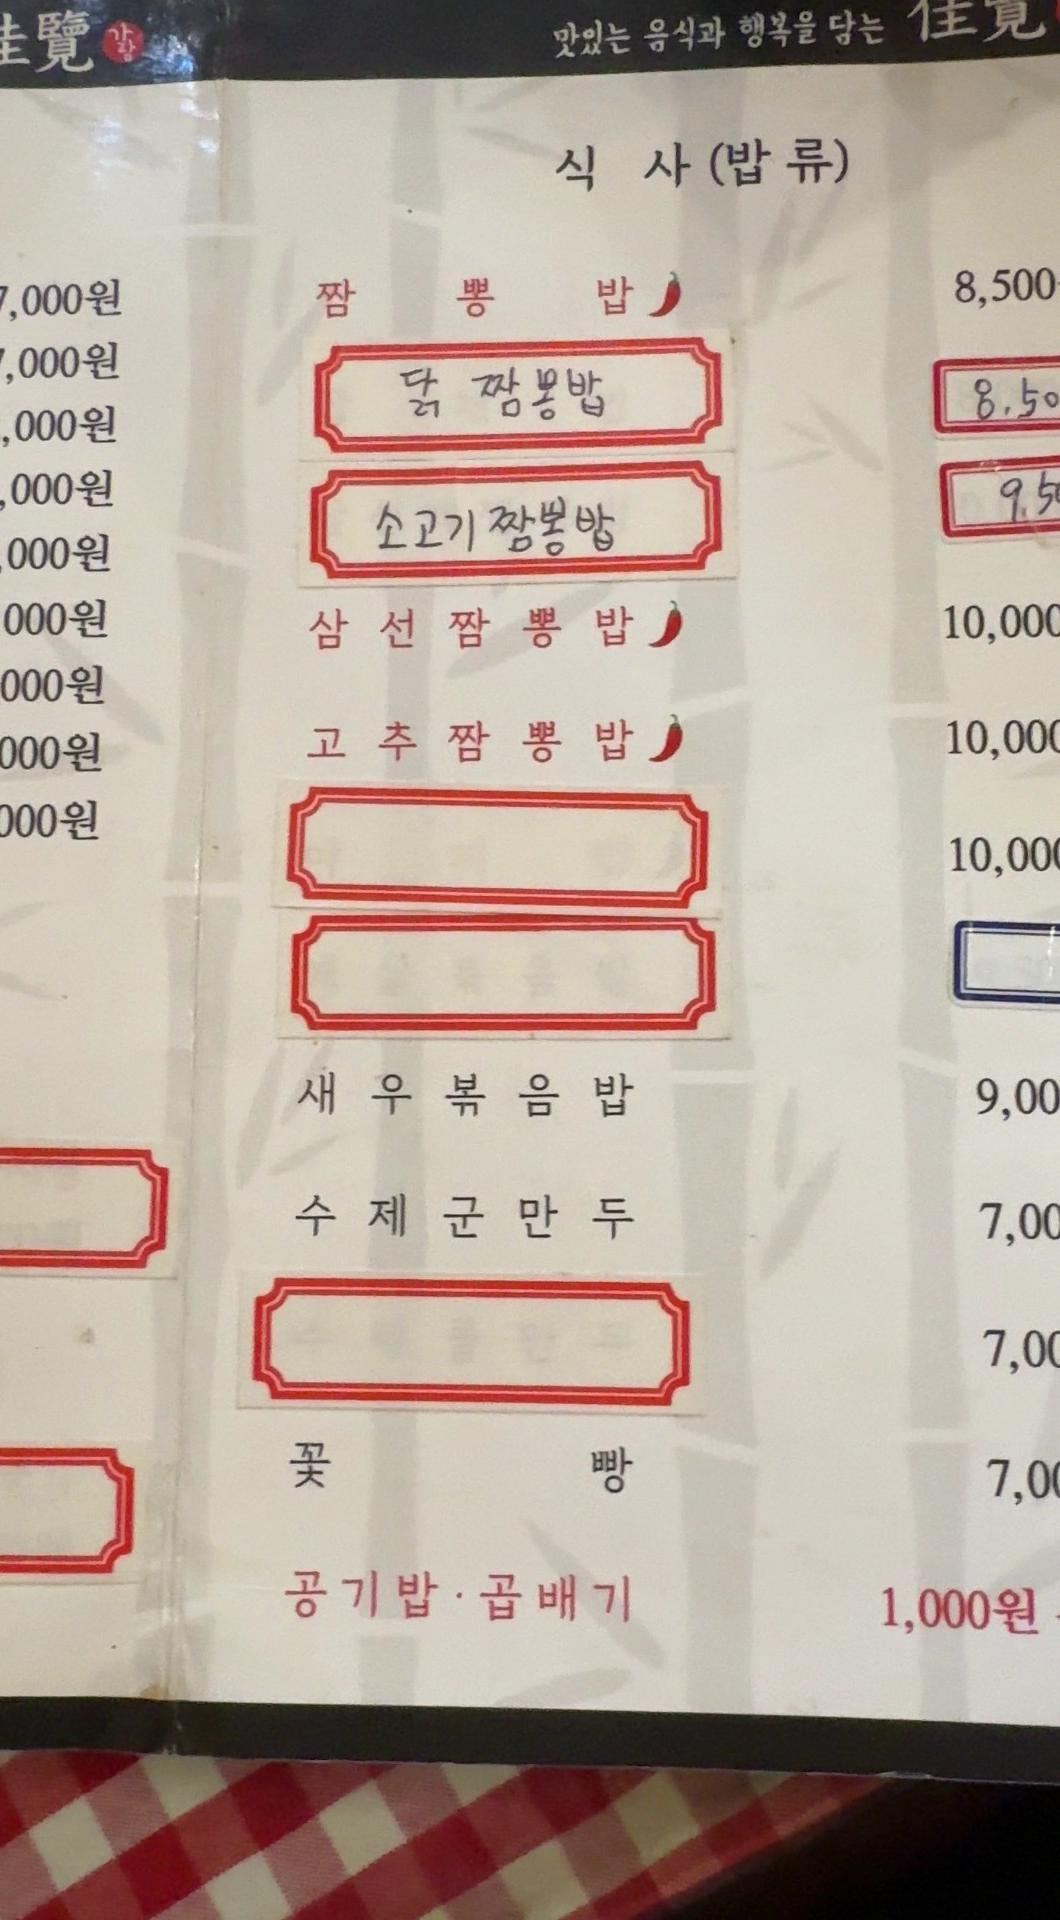 佳覽 가람
맛있는 음식과 행복을 담는 佳覽
식 사 (밥 류)
7,000원
7,000원
,000원
,000원
,000원
000원
000원
000원
000원
짬 뽕 밥 8,500
닭 짬뽕밥 8.50
소고기 짬뽕밥 9.50
삼 선 짬 뽕 밥 10,000
고 추 짬 뽕 밥 10,000
10,000
새 우 볶 음 밥 9,00
수 제 군 만 두 7,00
7,00
꽃 빵 7,00
공 기 밥 · 곱 배 기 1,000원